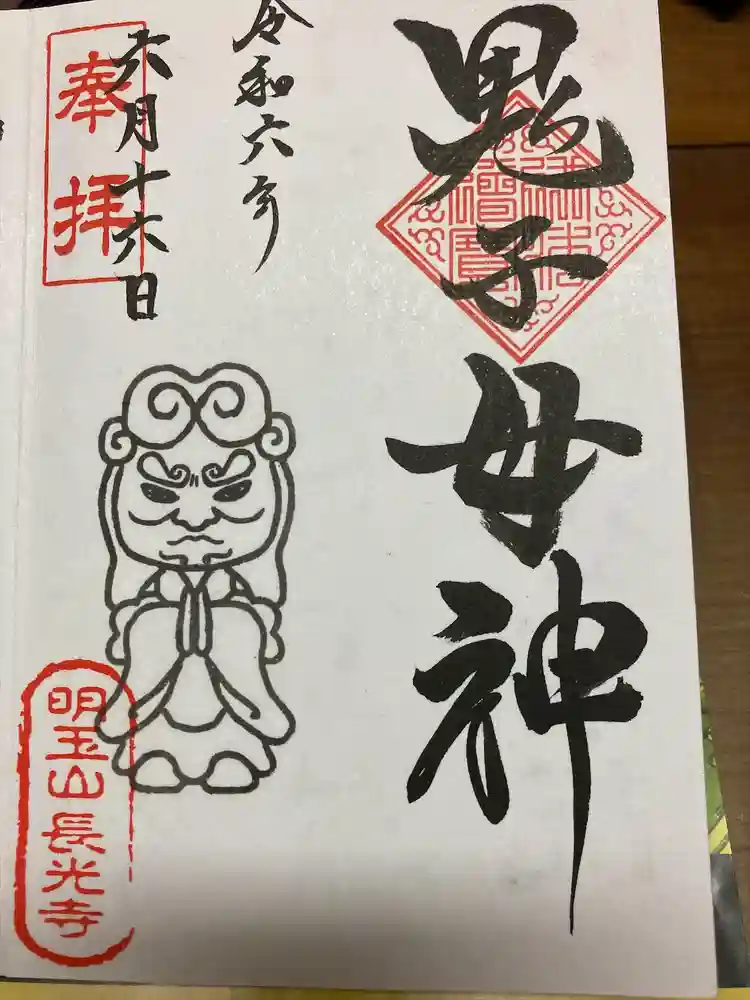 鬼子母神
佛法僧寶
令和六年
六月十六日
奉拝
明玉山長光寺